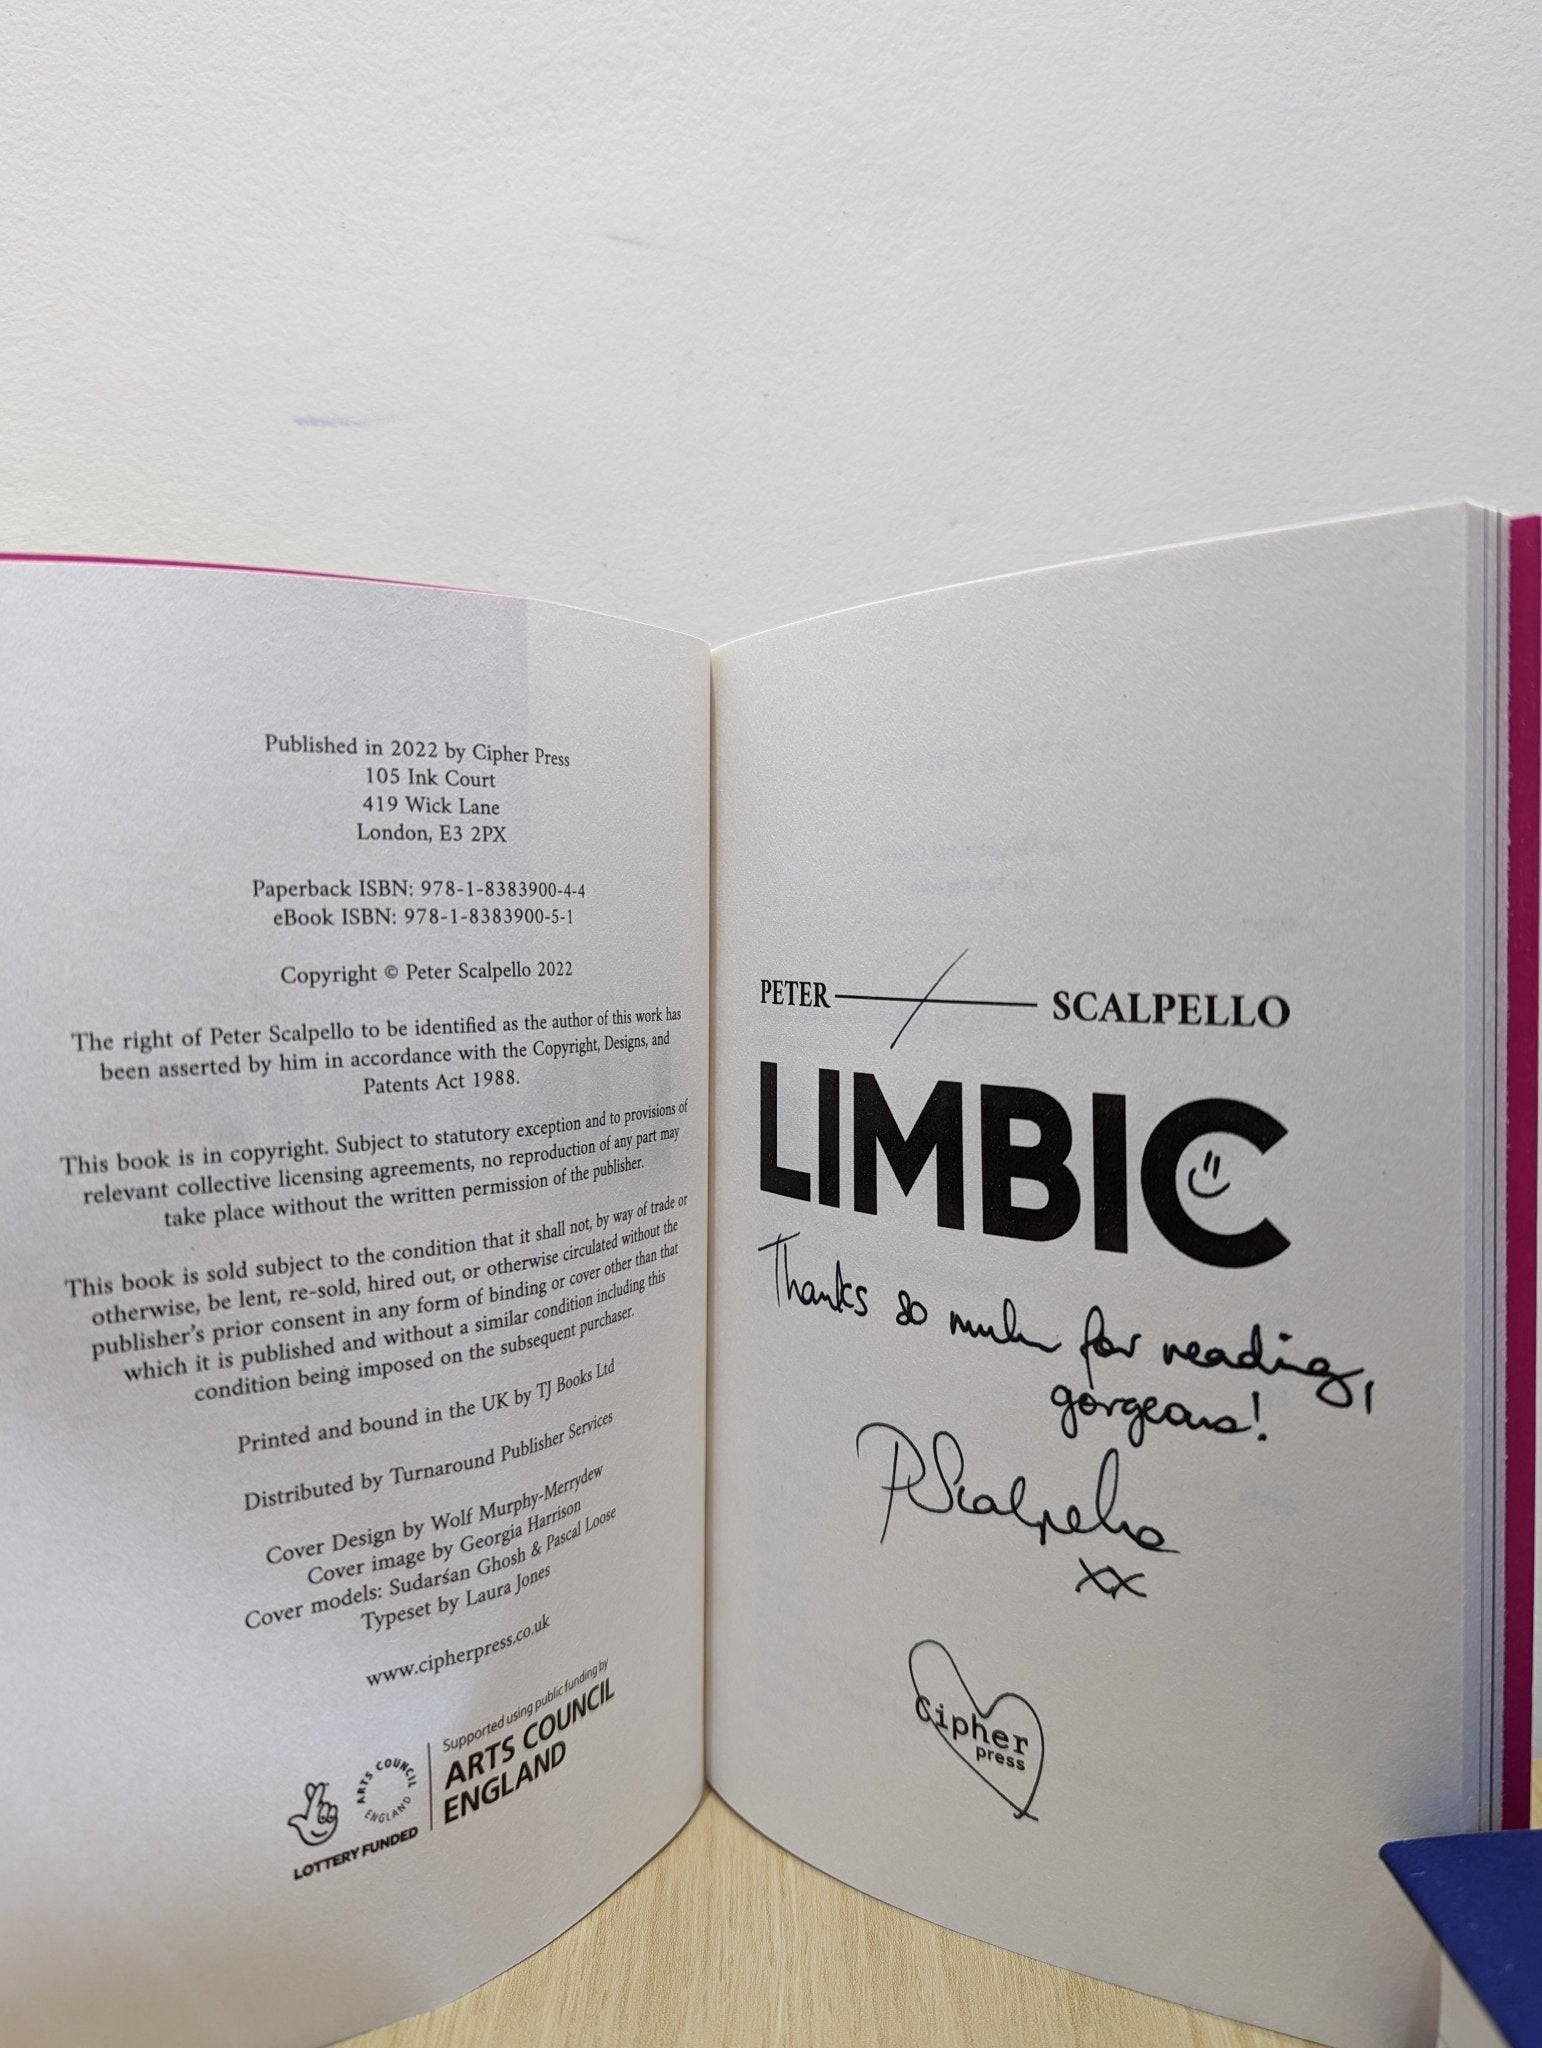 Published in 2022 by Cipher Press
105 Ink Court
419 Wick Lane
London, E3 2PX
Paperback ISBN: 978-1-8383900-4-4
eBook ISBN: 978-1-8383900-5-1
Copyright © Peter Scalpello 2022
The right of Peter Scalpello to be identified as the author of this work has
been asserted by him in accordance with the Copyright, Designs, and
Patents Act 1988.
This book is in copyright. Subject to statutory exception and to provisions of
relevant collective licensing agreements, no reproduction of any part may
take place without the written permission of the publisher.
This book is sold subject to the condition that it shall not, by way of trade or
otherwise, be lent, re-sold, hired out, or otherwise circulated without the
publisher's prior consent in any form of binding or cover other than that
which it is published and without a similar condition including this
condition being imposed on the subsequent purchaser.
Printed and bound in the UK by TJ Books Ltd
Distributed by Turnaround Publisher Services
Cover Design by Wolf Murphy-Merrydew
Cover image by Georgia Harrison
Cover models: Sudarśan Ghosh & Pascal Loose
Typeset by Laura Jones
www.cipherpress.co.uk
ARTS COUNCIL
ENGLAND
LOTTERY FUNDED
Supported using public funding by
ARTS COUNCIL
ENGLAND
PETER SCALPELLO
LIMBIC
Thanks so much for reading,
gorgeous!
PScalpello
xx
Cipher
press